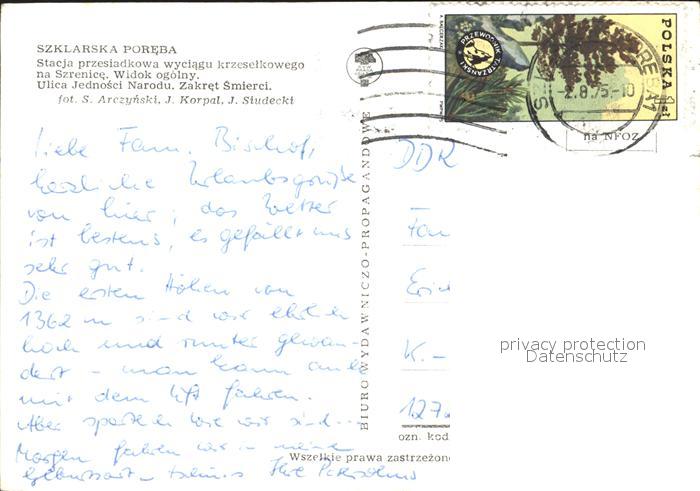 SZKLARSKA PORĘBA
Stacja przesiadkowa wyciągu krzesełkowego
na Szrenicę. Widok ogólny.
Ulica Jedności Narodu. Zakręt Śmierci.
fot. S. Arczyński, J. Korpal, J. Siudecki
Liebe Fam. Bischof,
herzliche Urlaubsgrüße
von hier; das Wetter
ist bestens, es gefällt uns
sehr gut.
Die ersten Höhen von
1362 m sind wir ehrlich
hoch und runter gewan-
dert - man kann auch
mit dem Lift fahren.
Aber sportlich wie wir sind...
Morgen fahren wir in meine
Geburtsort
BIURO WYDAWNICZO-PROPAGANDOWE
POLSKA
PRZEWODNIK TATRZAŃSKI
2.8.75-10
na NFOZ
DDR
Fam
K.-
127
ozn. kod
Wszelkie prawa zastrzeżone
privacy protection
Datenschutz